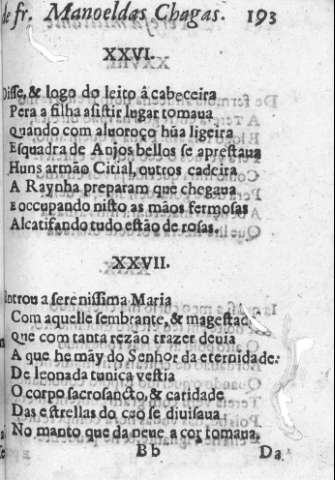 de fr. Manoel das Chagas. 193
XXVI.
Disse, & logo do leito â cabeceira
Pera a filha asistir lugar tomaua
Quando com aluoroço hũa ligeira
Esquadra de Anjos bellos se aprestaua
Huns armão Citial, outros cadeira
A Raynha preparam que chegaua
E occupando nisto as mãos fermosas
Alcatifando tudo estão de rosas.
XXVII.
Entrou a serenissima Maria
Com aquelle sembrante, & magestade
Que com tanta rezão trazer deuia
A que he mãy do Senhor da eternidade:
De leonada tunica vestia
O corpo sacrosancto, & caridade
Das estrellas do ceo se diuisaua
No manto que da neue a cor tomaua.
Bb Da